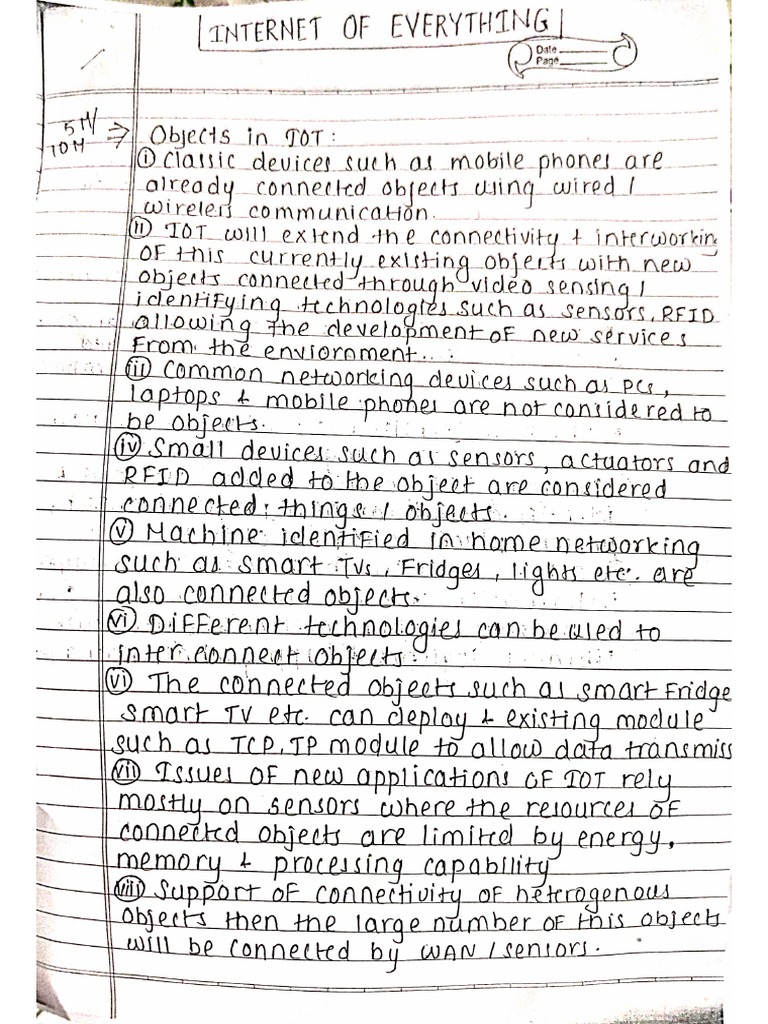 INTERNET OF EVERYTHING
Date
Page
5M/
10M
⇒ Objects in IOT:
(i) Classic devices such as mobile phones are
already connected objects using wired/
wireless communication.
(ii) IOT will extend the connectivity + interworkin
OF this currently existing objects with new
objects connected through video sensing/
identifying technologies such as sensors, RFID
allowing the development of new services
From the enviornment.
(iii) Common networking devices such as PCs,
laptops + mobile phones are not considered to
be objects.
(iv) Small devices such as sensors, actuators and
RFID added to the object are considered
connected things / objects.
(v) Machine identified in home networking
such as smart TVs, Fridges, lights etc. are
also connected objects.
(vi) Different technologies can be used to
inter connect objects.
(vi) The connected objects such as smart Fridge
smart TV etc. can deploy + existing module
such as TCP, IP module to allow data transmiss
(vii) Issues of new applications OF IOT rely
mostly on sensors where the resources OF
connected objects are limited by energy,
memory + processing capability
(viii) Support OF connectivity of hetrogenous
objects then the large number of this objects
will be connected by WAN / sensors.